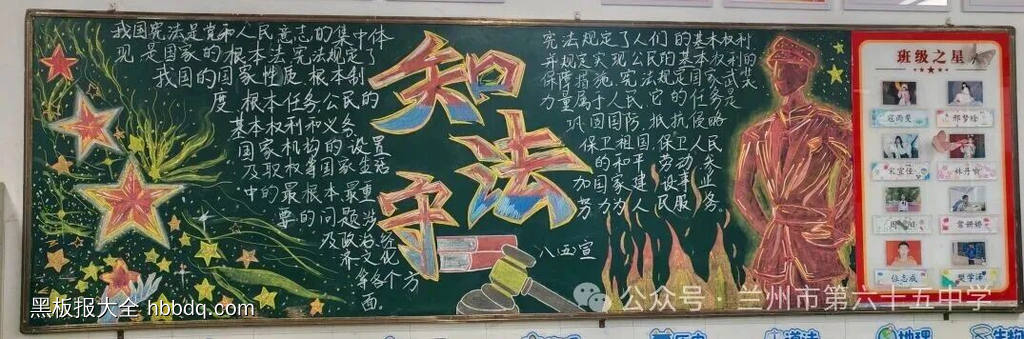 我国宪法是党和人民意志的集中体
现是国家的根本法宪法规定了
我国的国家性质根本制
度根本任务公民的
基本权利和义务
国家机构的设置
及职权等国家生活
中的最根本最重
要的问题涉
及政治经
济文化
等各个方
面。
知
法
守
宪法规定了人们的基本权利
并规定实现公民的基本权利的
保障措施宪法规定国家武装
力量属于人民它的任务是
巩固国防,抵抗侵略
保卫祖国,保卫人民
的和平劳动,参
加国家建设事业
努力为人民服务
八五宣
班级之星
寇雨斐
邢梦绘
宋宜佳
林丹
常妍娇
伍志成
樊学泽
黑板报大全 hbbdq.com
公众号·兰州市第六十五中学
历史
道法
地理
生物